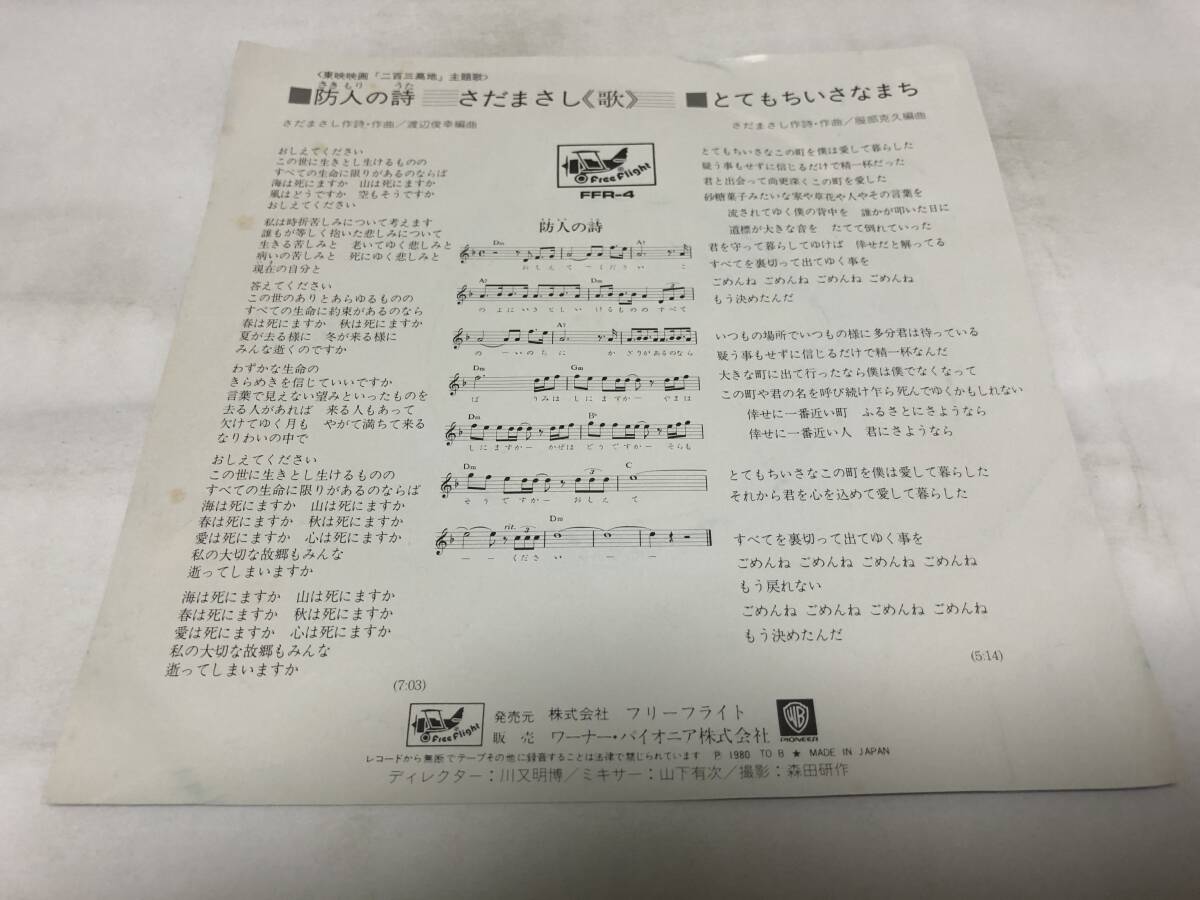 〈東映映画「二百三高地」主題歌〉
■防人の詩 さだまさし《歌》 ■とてもちいさなまち
さきもり うた
さだまさし作詩・作曲／渡辺俊幸編曲
おしえてください
この世に生きとし生けるものの
すべての生命に限りがあるのならば
海は死にますか 山は死にますか
風はどうですか 空もそうですか
おしえてください
私は時折苦しみについて考えます
誰もが等しく抱いた悲しみについて
生きる苦しみと 老いてゆく悲しみと
病いの苦しみと 死にゆく悲しみと
現在の自分と
答えてください
この世のありとあらゆるものの
すべての生命に約束があるのなら
春は死にますか 秋は死にますか
夏が去る様に 冬が来る様に
みんな逝くのですか
わずかな生命の
きらめきを信じていいですか
言葉で見えない望みといったものを
去る人があれば 来る人もあって
欠けてゆく月も やがて満ちて来る
なりわいの中で
おしえてください
この世に生きとし生けるものの
すべての生命に限りがあるのならば
海は死にますか 山は死にますか
春は死にますか 秋は死にますか
愛は死にますか 心は死にますか
私の大切な故郷もみんな
逝ってしまいますか
海は死にますか 山は死にますか
春は死にますか 秋は死にますか
愛は死にますか 心は死にますか
私の大切な故郷もみんな
逝ってしまいますか
(7:03)
FreeFlight
FFR-4
防人の詩
Dm A7
おしえてーください こ
A7 Dm
のよにいきとしい けるものの すべて
A7
のーいのちに かぎりがあるのなら
Dm Gm
ば うみはしにますかー やまは
Dm B♭
しにますかー かぜはどうですかー そらも
Dm 3 C
そうですかー おしえて
rit. 3 Dm
ーーくださいーー
さだまさし作詩・作曲／服部克久編曲
とてもちいさなこの町を僕は愛して暮らした
疑う事もせずに信じるだけで精一杯だった
君と出会って尚更深くこの町を愛した
砂糖菓子みたいな家や草花や人やその言葉を
流されてゆく僕の背中を 誰かが叩いた日に
道標が大きな音を たてて倒れていった
君を守って暮らしてゆけば 倖せだと解ってる
すべてを裏切って出てゆく事を
ごめんね ごめんね ごめんね ごめんね
もう決めたんだ
いつもの場所でいつもの様に多分君は待っている
疑う事もせずに信じるだけで精一杯なんだ
大きな町に出て行ったなら僕は僕でなくなって
この町や君の名を呼び続け乍ら死んでゆくかもしれない
倖せに一番近い町 ふるさとにさようなら
倖せに一番近い人 君にさようなら
とてもちいさなこの町を僕は愛して暮らした
それから君を心を込めて愛して暮らした
すべてを裏切って出てゆく事を
ごめんね ごめんね ごめんね ごめんね
もう戻れない
ごめんね ごめんね ごめんね ごめんね
もう決めたんだ
(5:14)
FreeFlight
発売元 株式会社 フリーフライト
販 売 ワーナー・パイオニア株式会社
WB PIONEER
レコードから無断でテープその他に録音することは法律で禁じられています Ⓟ 1980 TO B ★ MADE IN JAPAN
ディレクター：川又明博／ミキサー：山下有次／撮影：森田研作